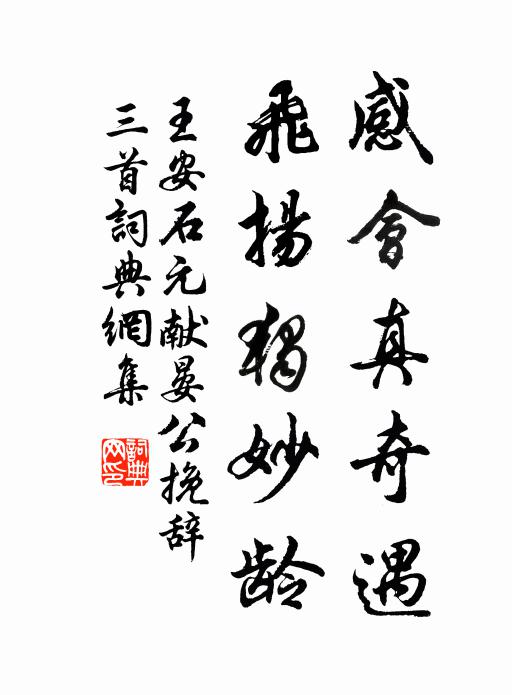 感會真奇遇
飛揚獨妙齡
王安石元献晏公挽辞
三首詞典網集
詞典網印